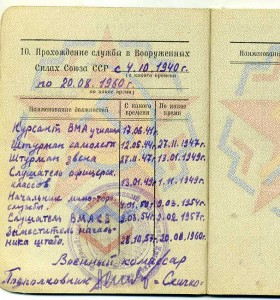 10. Прохождение службы в Вооруженных
Силах Союза ССР с 4.10.1940г.
(с какого времени
по 20.08.1960г.
по какое время)
Наименование должностей
С какого времени
По какое время
Курсант ВМА училища 17.06.41г.
Штурман самолета 12.05.44г. 27.11.1947г.
Штурман звена 27.11.47г. 13.01.1949г.
Слушатель офицерск.
классов 13.01.49г. 1.11.1949г.
Начальник мино-торп.
службы 4.01.50г. 9.03.1954г.
Слушатель ВМАКВ 9.03.54г. 9.02.1957г.
Заместитель началь-
ника штаба. 28.10.57г. 20.08.1960г.
Военный комиссар
Подполковник